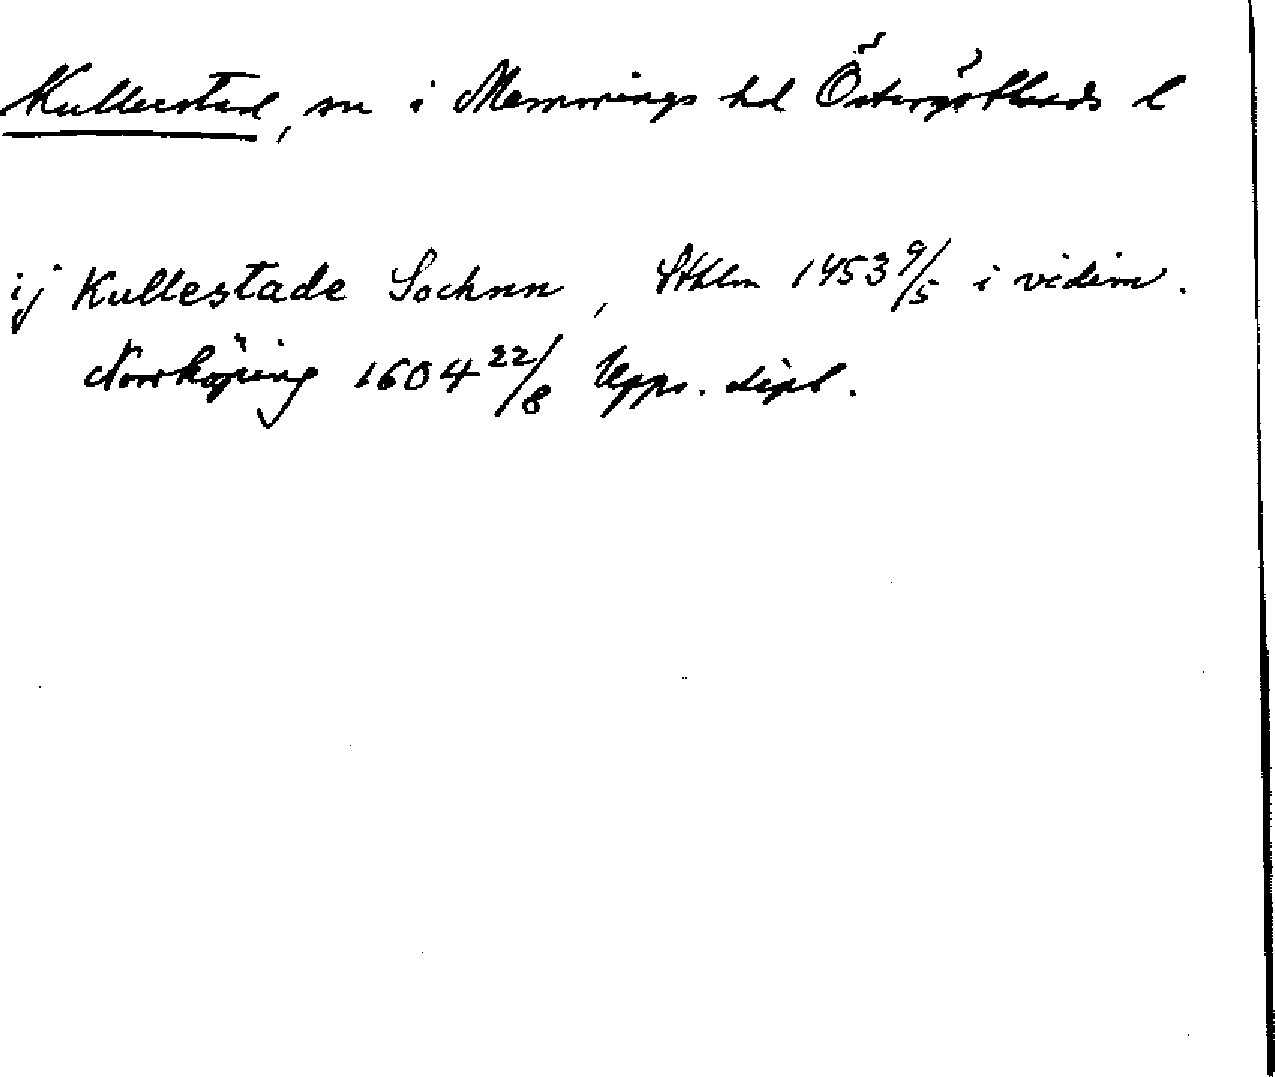 Kullerstad, sn i Memmings hd Östergötlands l
ij Kullestade Sochnn, Sthlm 1453 9/5 i vidim.
Norrköping 1604 22/8 Upps. dipl.